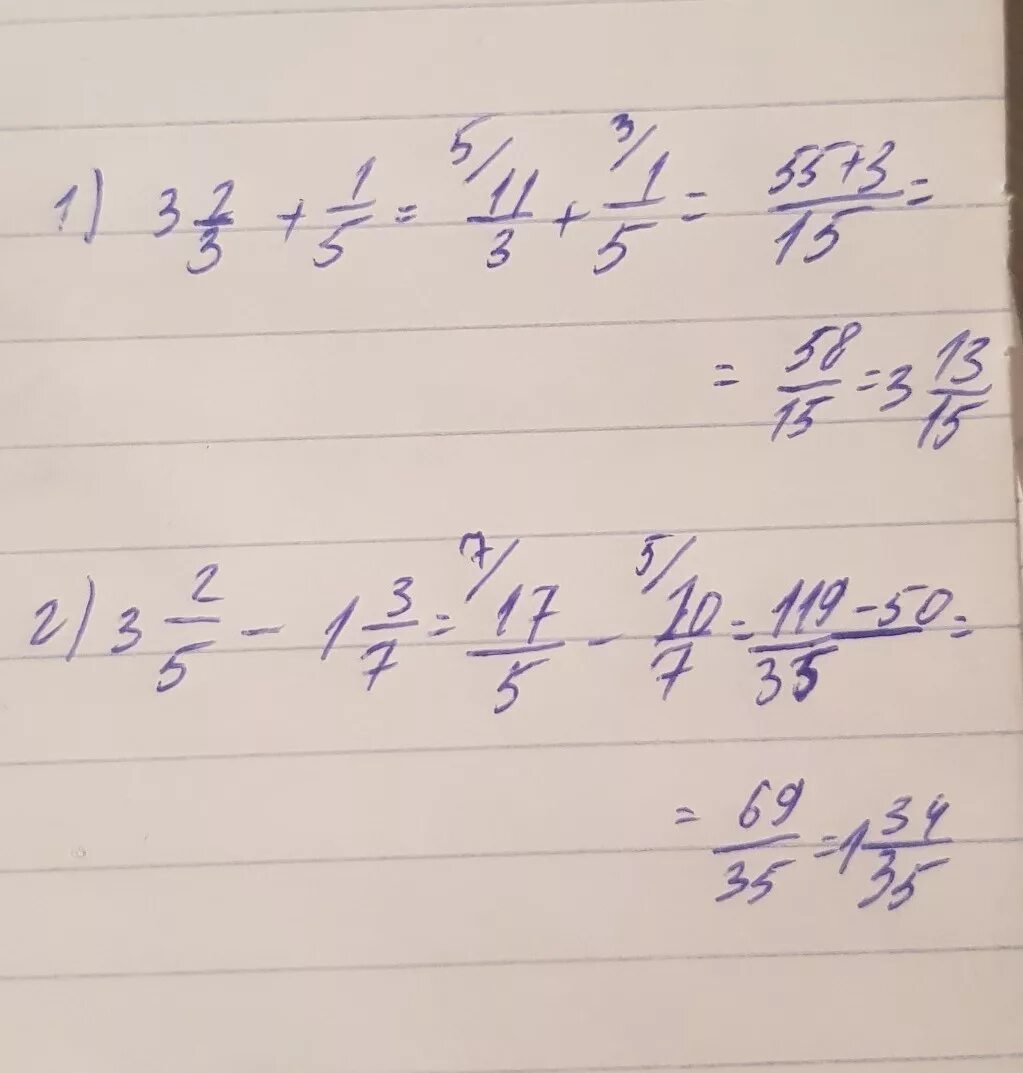 1) 3 2/3 + 1/5 = 5/ 11/3 + 3/ 1/5 = 55+3/15 =
= 58/15 = 3 13/15
2) 3 2/5 - 1 3/7 = 7/ 17/5 - 5/ 10/7 = 119-50/35 =
= 69/35 = 1 34/35